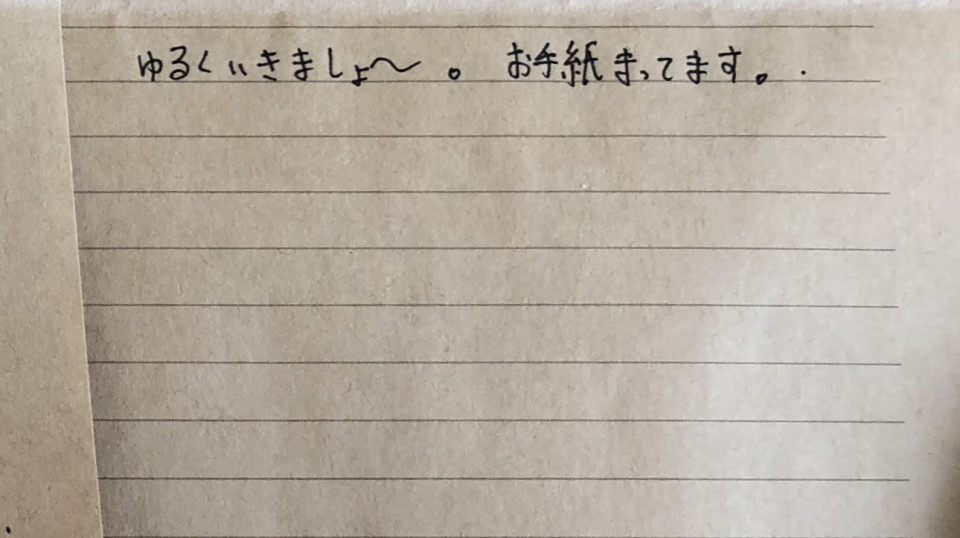 ゆるくいきましょ〜。お手紙まってます。.